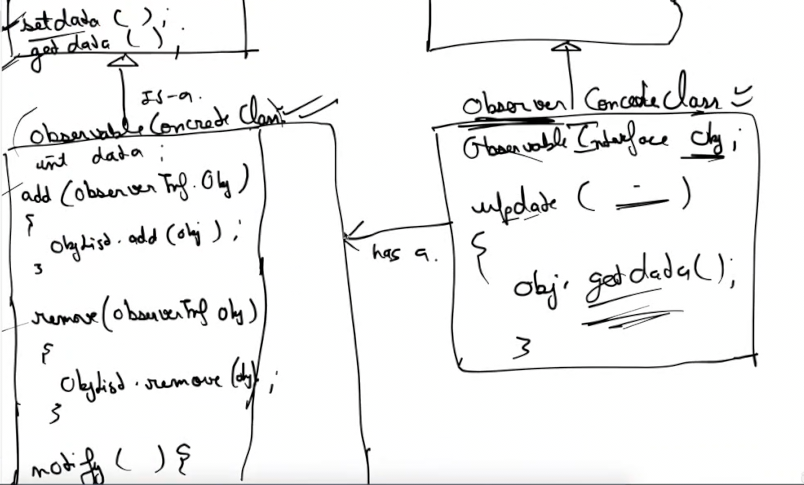 setdata ( );
get data ( );
IS-a.
Observable Concrete Class
int data ;
add (Observer Inf. Obj)
{
Objlist. add (obj) ;
}
remove (observer Inf Obj)
{
Objlist. remove (obj) ;
}
notify ( ) {
has a.
Observer Concrete Class
Observable Interface obj ;
update ( )
{
obj. getdata();
}